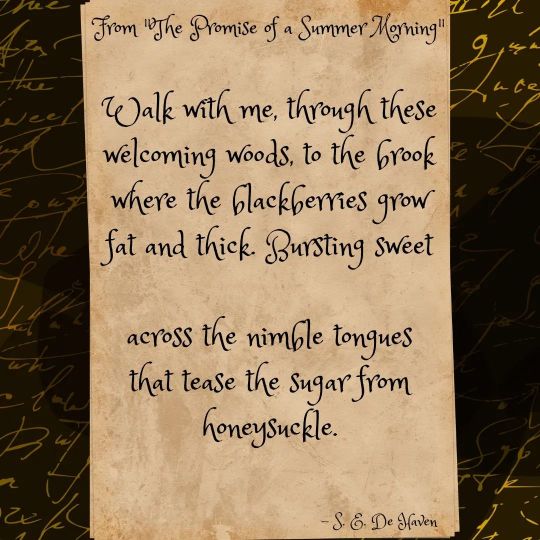 From "The Promise of a Summer Morning"
Walk with me, through these
welcoming woods, to the brook
where the blackberries grow
fat and thick. Bursting sweet
across the nimble tongues
that tease the sugar from
honeysuckle.
– S. E. De Haven